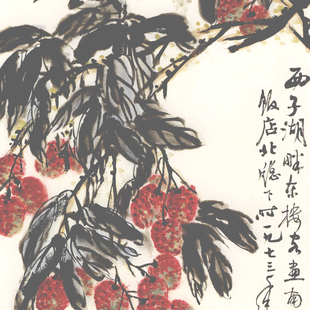 西子湖畔东楼客画南
饭店北隐下时一九七三年